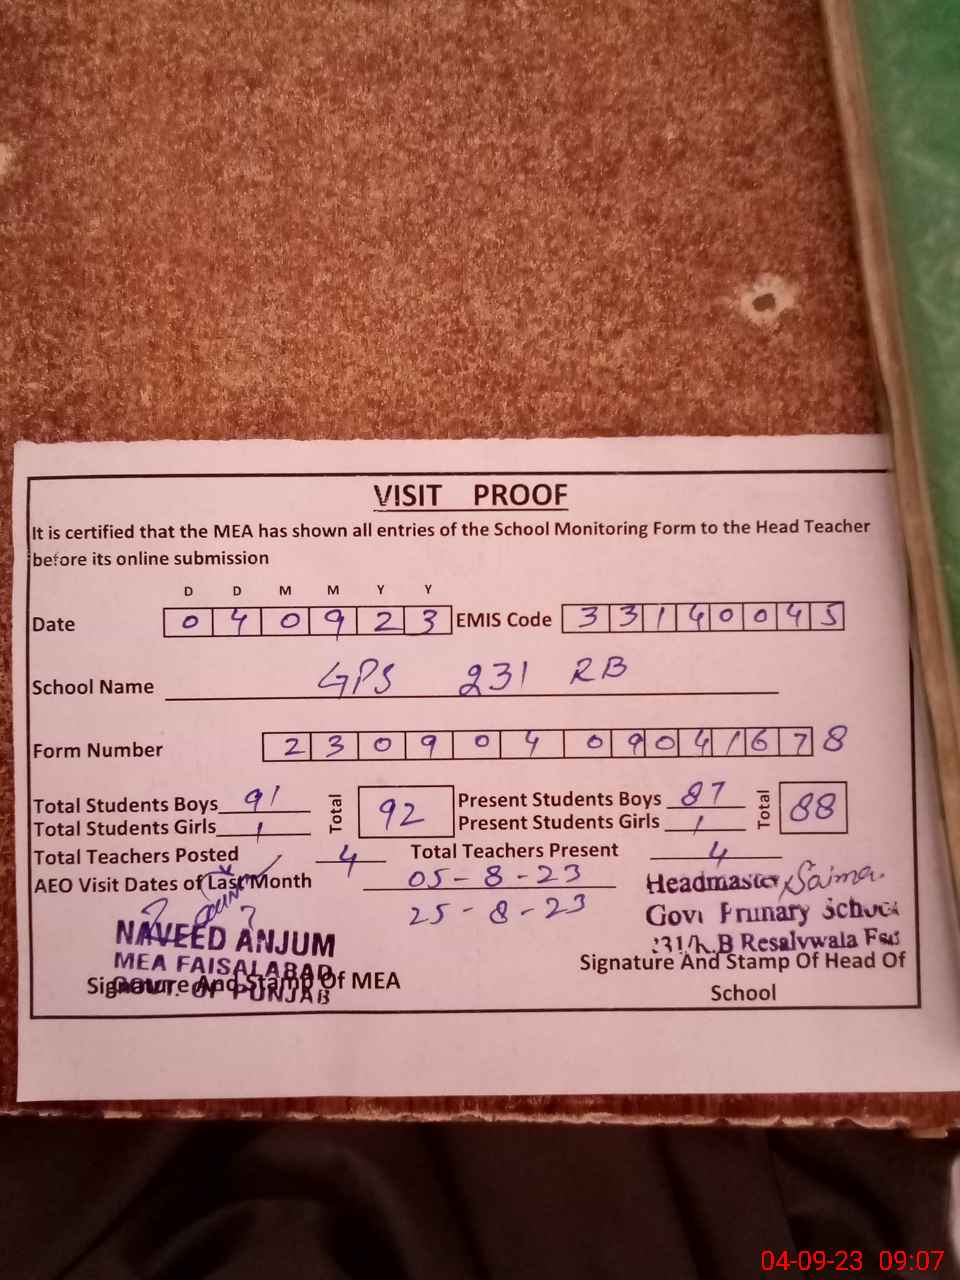 VISIT PROOF
It is certified that the MEA has shown all entries of the School Monitoring Form to the Head Teacher
before its online submission
D D M M Y Y
Date 0 4 0 9 2 3 EMIS Code 3 3 1 4 0 0 4 5
School Name GPS 231 RB
Form Number 2 3 0 9 0 4 0 9 0 4 1 6 7 8
Total Students Boys 91 Total 92 Present Students Boys 87 Total 88
Total Students Girls 1 Present Students Girls 1
Total Teachers Posted 4 Total Teachers Present 4
AEO Visit Dates of Last Month 05-8-23
25-8-23
Headmaster Saima
Govt Primary School
231/R.B Resalvwala Fsd
NAVEED ANJUM
MEA FAISALABAD
GOVT. OF PUNJAB
Signature And Stamp Of MEA
Signature And Stamp Of Head Of
School
04-09-23 09:07